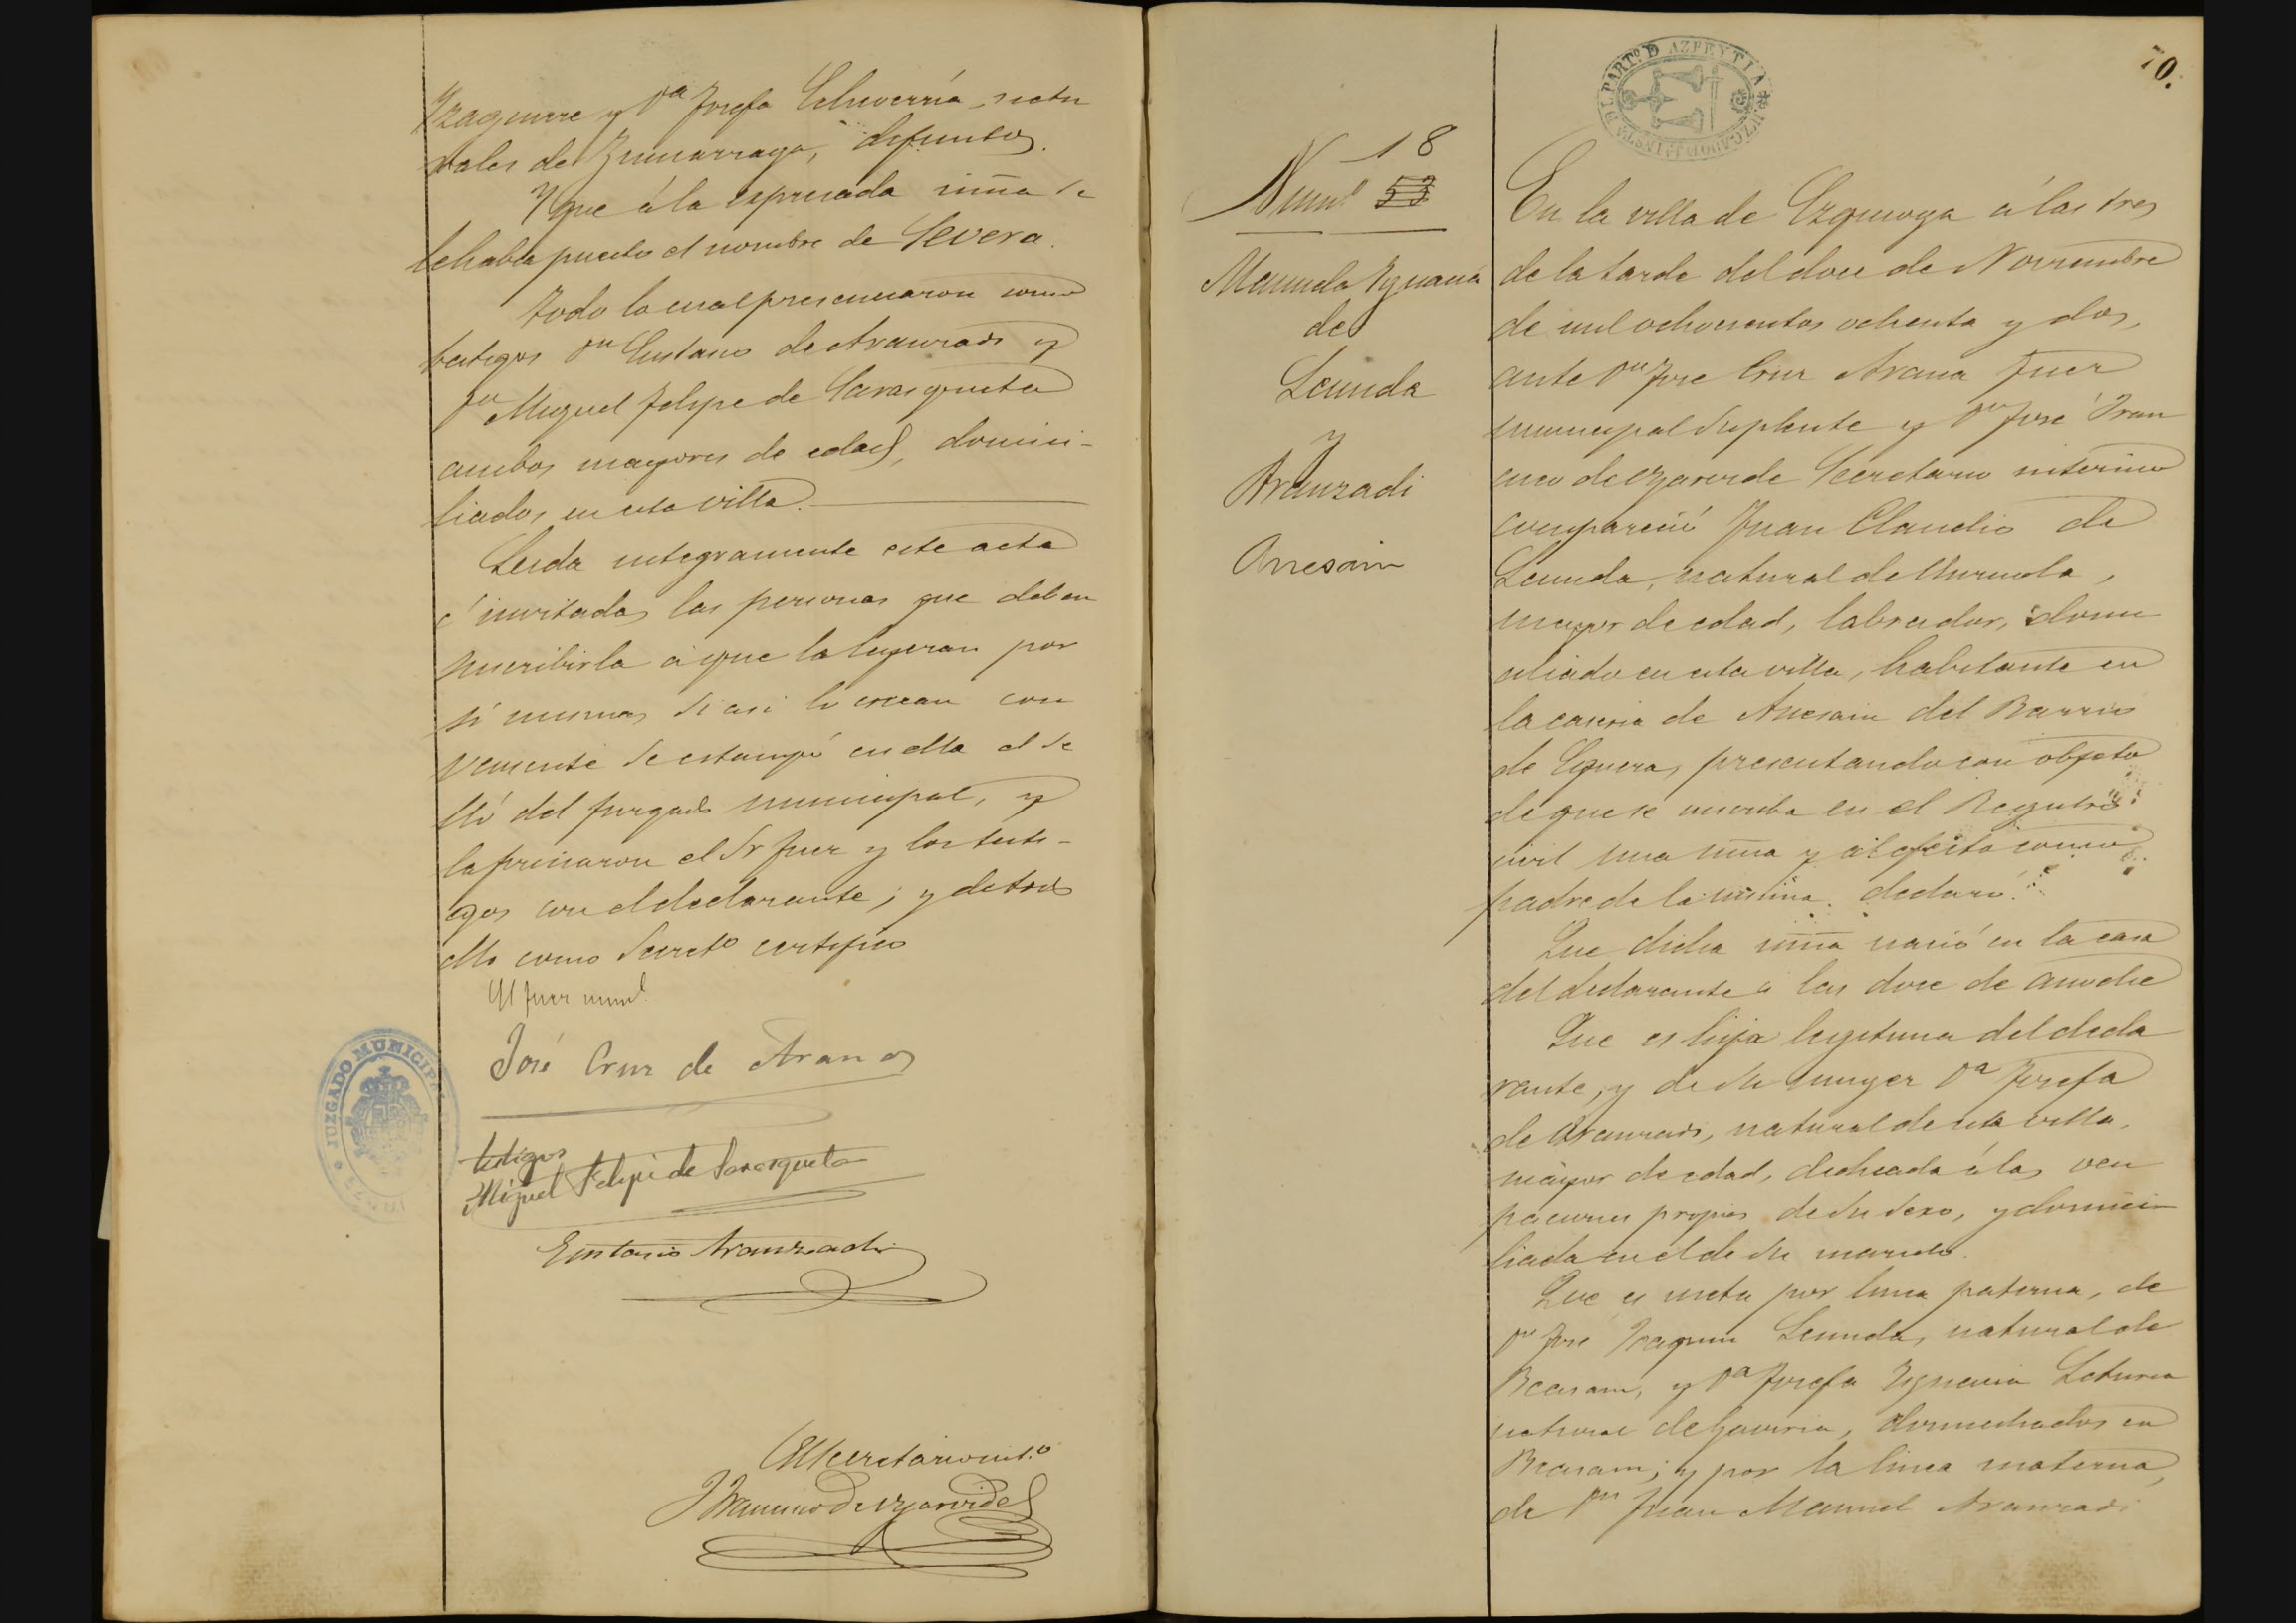 Yzaguirre y Dª Josefa Echeverría, natu
rales de Zumarraga, difuntos.
Y que á la espresada niña se
le habia puesto el nombre de Severa.
Todo lo cual presenciaron como
testigos Dn Eustasio de Aranzadi y
Dn Miguel Felipe de Sarasqueta
ambos mayores de edad, domici-
liados en esta villa.
Leida integramente este acta
é invitadas las personas que deben
suscribirla á que la leyeran por
si mismas si asi lo creian con
veniente se estampó en ella el se
llo del Juzgado municipal, y
la firmaron el Sr Juez y los testi-
gos con el declarante; y de todo
ello como Secretº certifico
El Juez munl.
José Cruz de Arana
JUZGADO MUNICIPAL
testigos
Miguel Felipe de Sarasqueta
Eustasio Aranzadi
El Secretario intº
Francisco de Yzaguirre
70.
PARTº D AZPEYTIA
18
Numº 53
Manuela Ygnacia
de
Leunda
y
Aranzadi
Anesain
En la villa de Ezquioga á las tres
de la tarde del doce de Noviembre
de mil ochocientos ochenta y dos,
ante Dn Jose Cruz Arana Juez
municipal Suplente y Dn José Fran
cisco de Secretario interino
compareció Juan Claudio de
Leunda, natural de
mayor de edad, labrador, domi
ciliado en esta villa, habitante en
la caseria de Anesain del Barrio
de presentando con objeto
de que se inscriba en el Registro
civil una niña y al efecto como
padre de la misma declaró:
Que dicha niña nació en la casa
del declarante a las doce de anoche
Que es hija legitima del decla
rante, y de su muger Dª Josefa
de Aranzadi, natural de esta villa,
mayor de edad, dedicada á las ocu
paciones propias de su sexo, y domici
liada en el de su marido.
Que es nieta por linea paterna, de
Dn José Joaquin Leunda, natural de
Beasain, y Dª Josefa Ygnacia Leturia
natural de Gaviria, domiciliados en
Beasain; y por la linea materna,
de Dn Juan Manuel Aranzadi